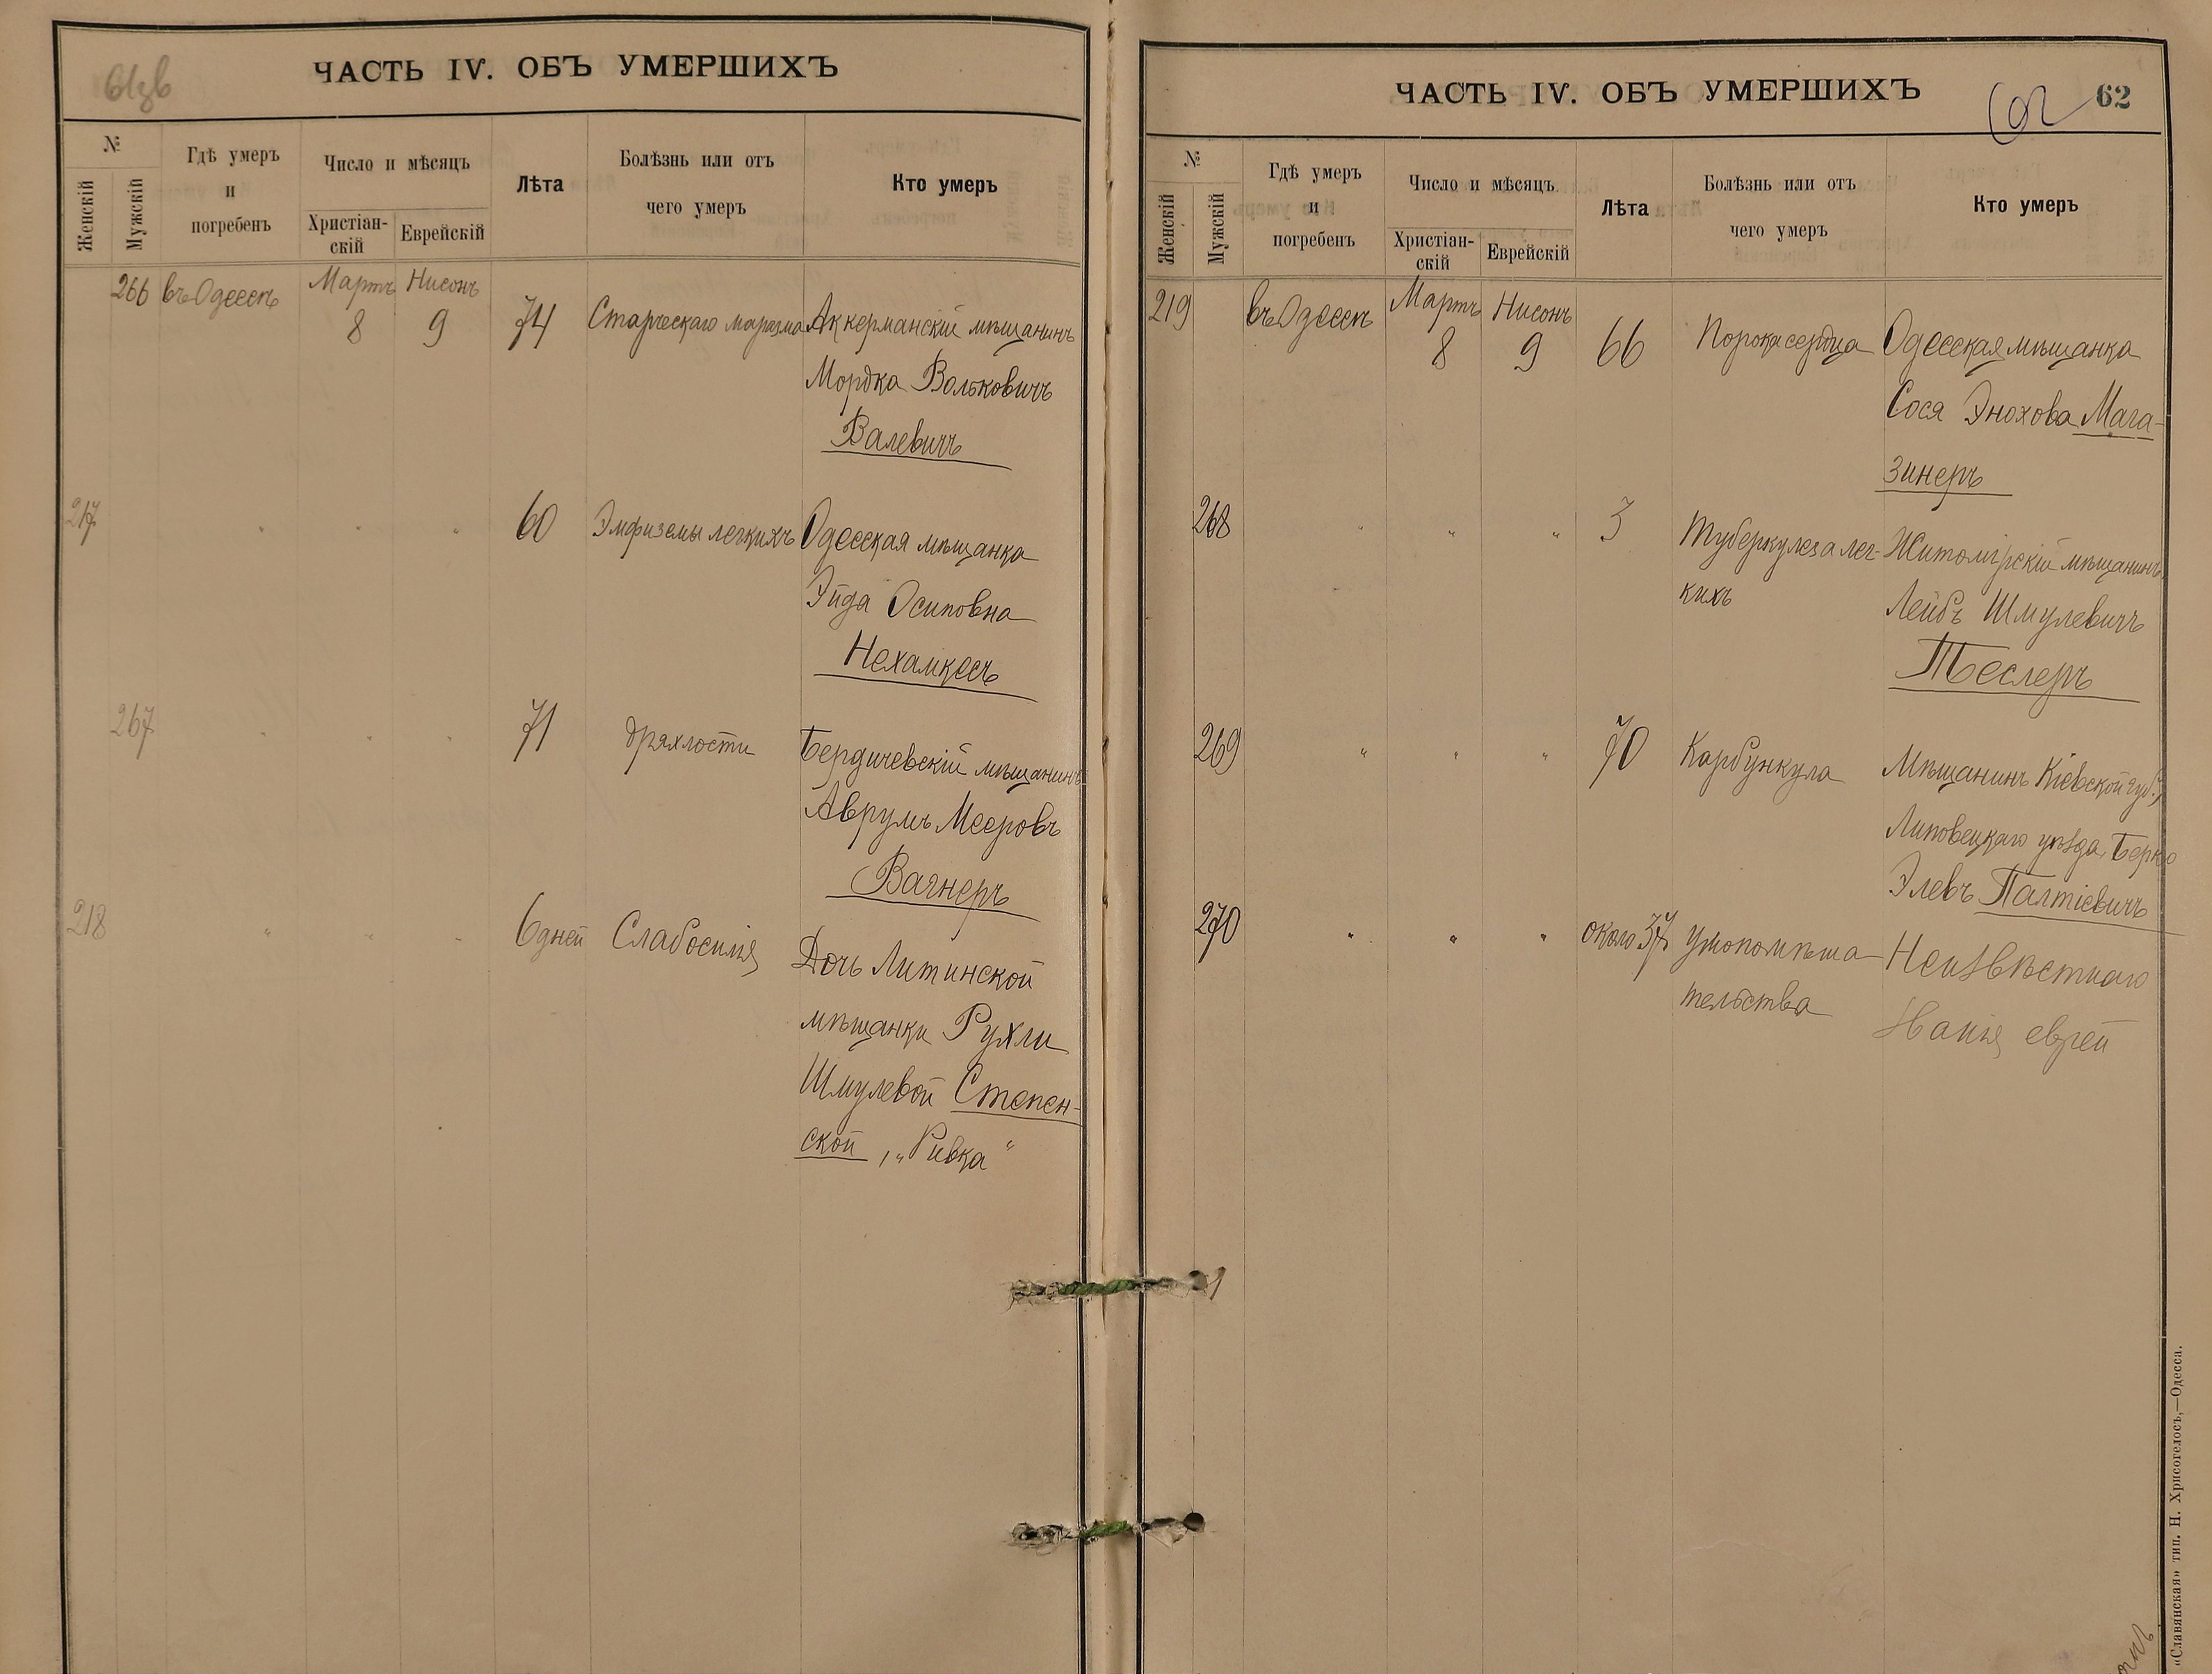 61зв
ЧАСТЬ IV. ОБЪ УМЕРШИХЪ
№
Женскій
Мужскій
Гдѣ умеръ
и
погребенъ
Число и мѣсяцъ
Христіан-
скій
Еврейскій
Лѣта
Болѣзнь или отъ
чего умеръ
Кто умеръ
266 въ Одессѣ Мартъ 8 Нисонъ 9 74 Старческаго маразма Аккерманскій мѣщанинъ
Мордка Вольковичъ
Валевичъ
217 " " " 60 Эмфиземы легкихъ Одесская мѣщанка
Эйда Осиповна
Нехамкесъ
267 " " " 71 дряхлости Бердичевскій мѣщанинъ
Аврумъ Мееровъ
Вагнеръ
218 " " " 6 дней Слабосилія Дочь Литинской
мѣщанки Рухли
Шмулевой Степен-
ской, „Ривка“
ЧАСТЬ IV. ОБЪ УМЕРШИХЪ
62
62
№
Женскій
Мужскій
Гдѣ умеръ
и
погребенъ
Число и мѣсяцъ
Христіан-
скій
Еврейскій
Лѣта
Болѣзнь или отъ
чего умеръ
Кто умеръ
219 въ Одессѣ Мартъ 8 Нисонъ 9 66 Порока сердца Одесская мѣщанка
Сося Энохова Мага-
зинеръ
268 " " " 3 Туберкулеза лег- Житомірскій мѣщанинъ
кихъ Лейбъ Шмулевичъ
Теслеръ
269 " " " 70 Карбункула Мѣщанинъ Кіевской губ.,
Липовецкаго уѣзда, Берко
Элевъ Палтіевичъ
270 " " " около 37 умопомѣша- Неизвѣстнаго
тельства званія еврей
«Славянская» тип. Н. Хрисогелосъ,—Одесса.